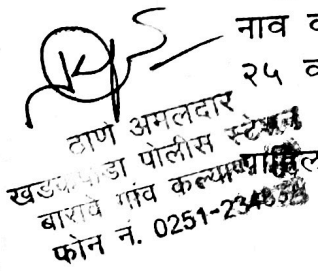 नाव
२५ व
ठाणे अमलदार
खडकपाडा पोलीस स्टेशन
बारावे गांव कल्याण
फोन नं. 0251-